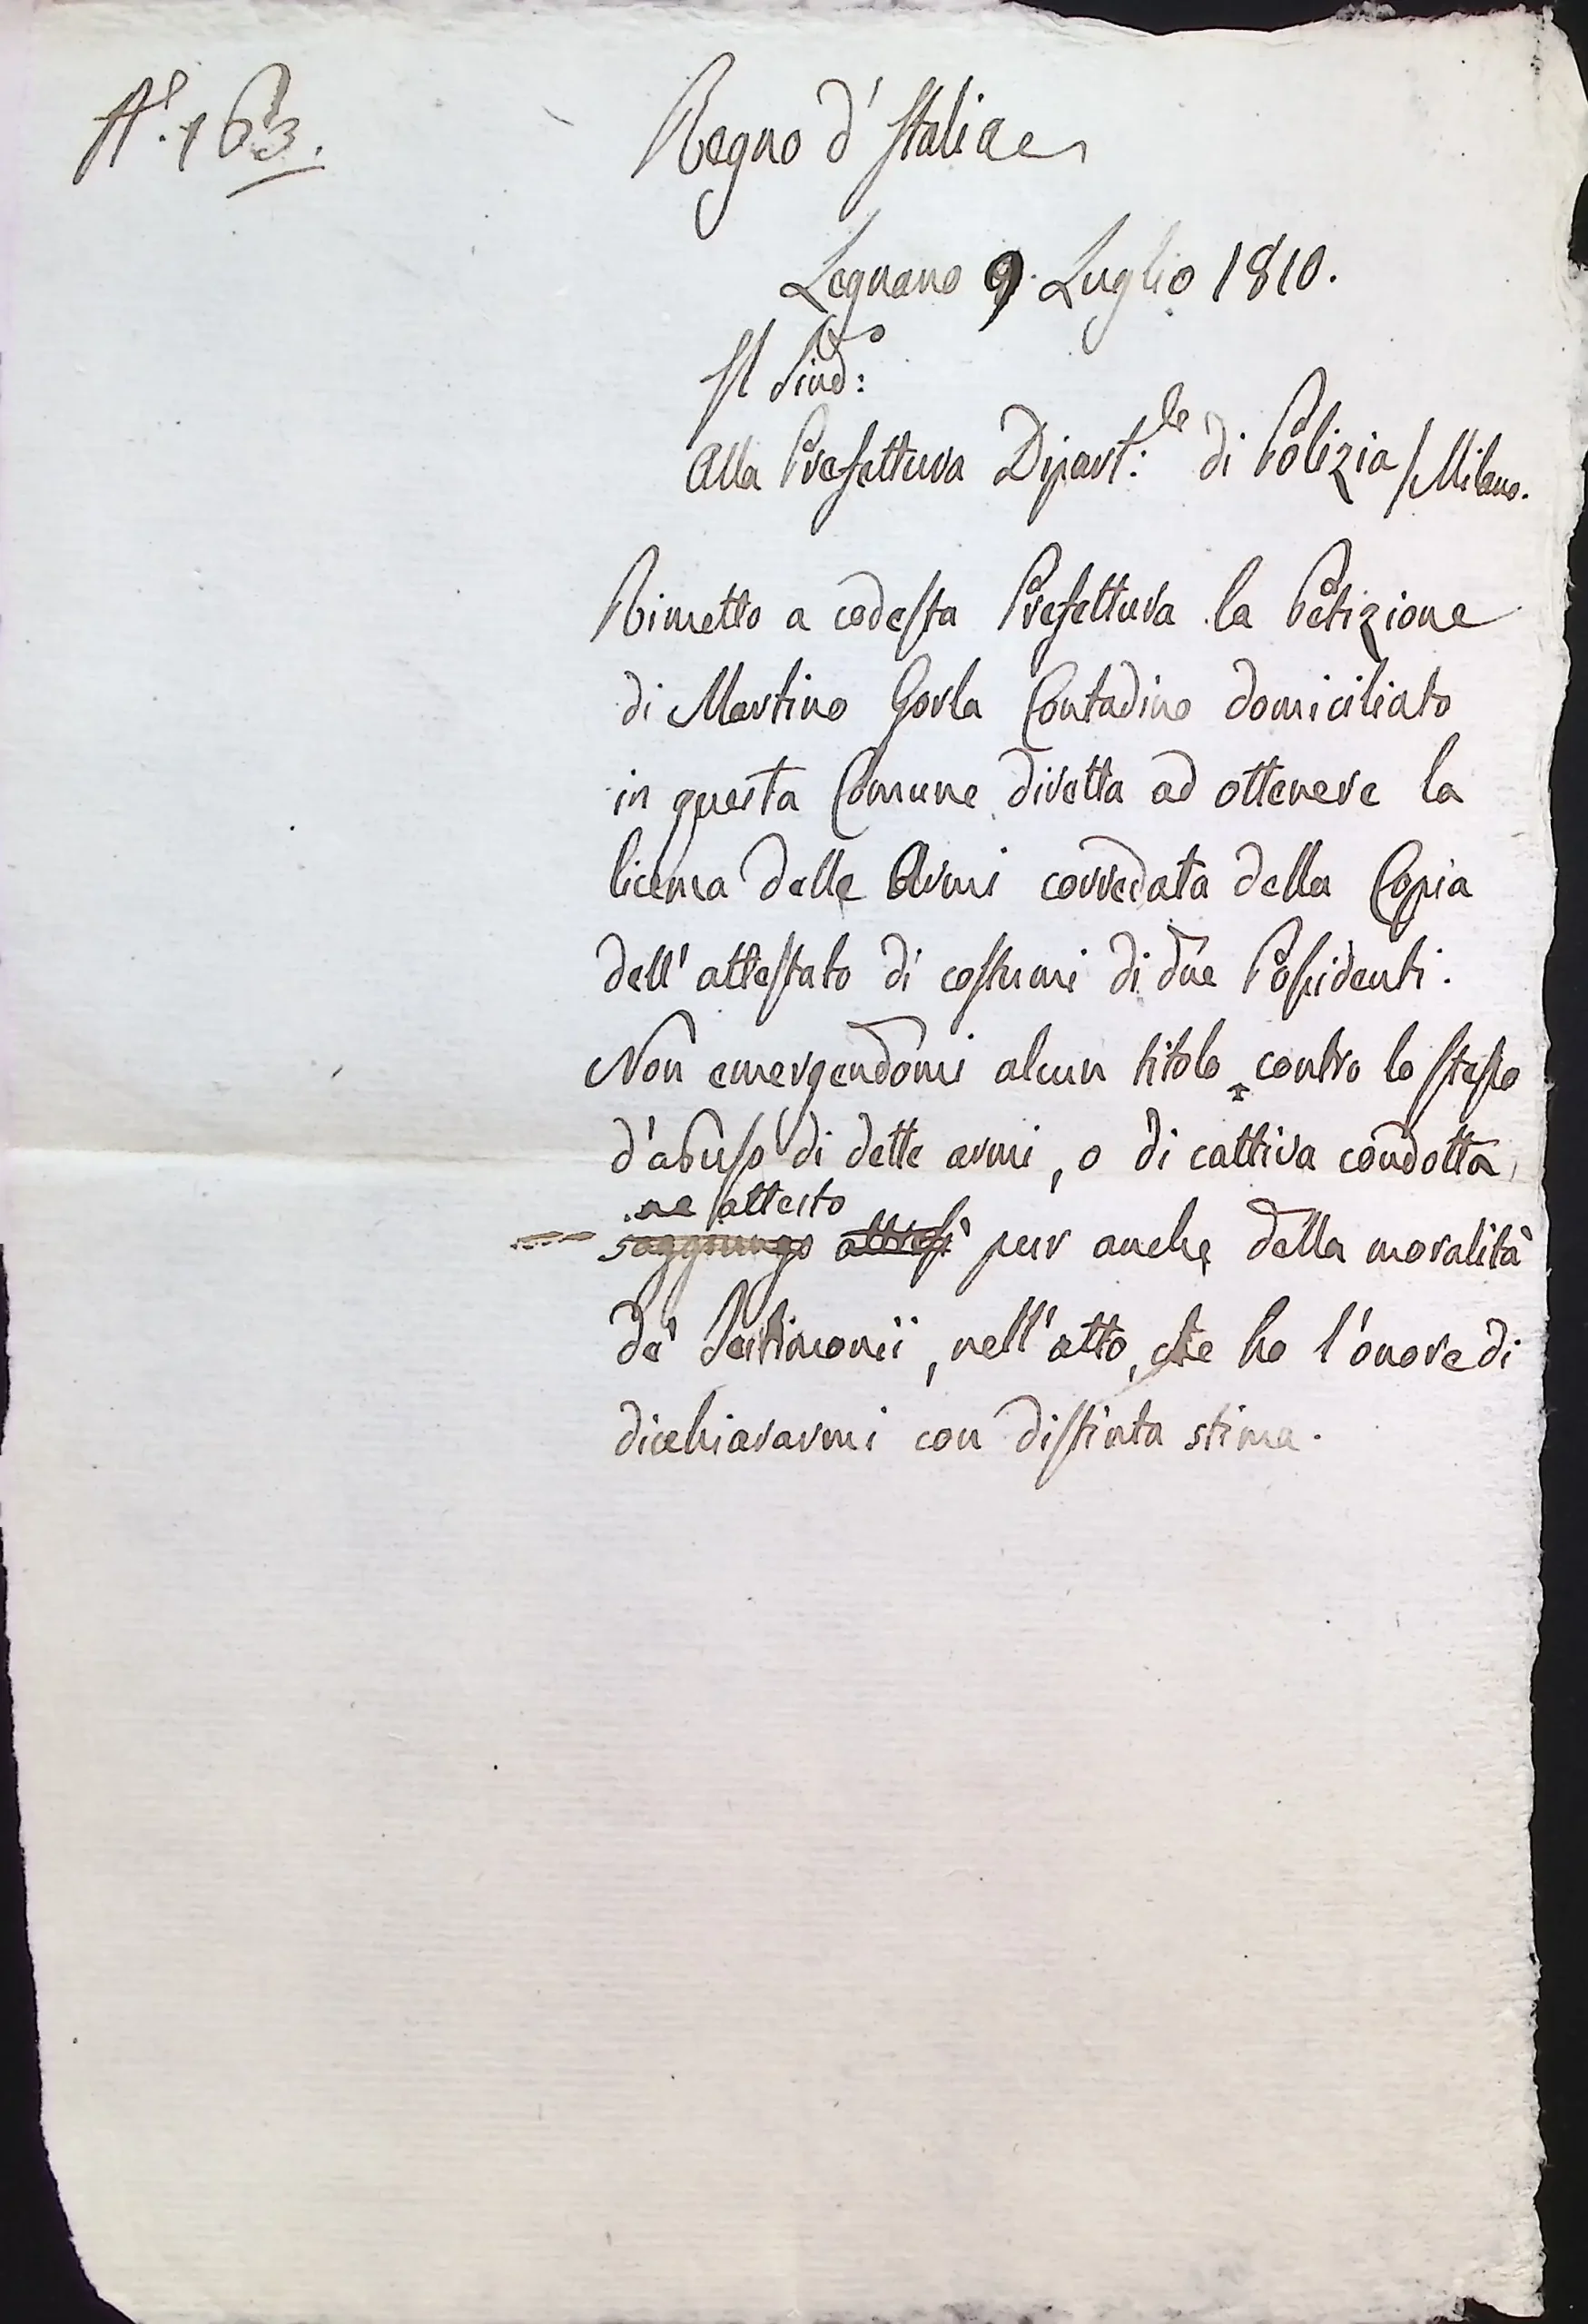 N.º 163.
Regno d'Italia
Legnano 9. Luglio 1810.
Il Sind:co
Alla Prefettura Dipart:le di Polizia / Milano.
Rimetto a codesta Prefettura la Petizione
di Martino Gorla Contadino domiciliato
in questa Comune diretta ad ottenere la
licenza delle Armi corredata della Copia
dell'attestato di costumi di due Possidenti.
Non emergendomi alcun titolo contro lo stesso
d'abuso di dette armi, o di cattiva condotta,
ne attesto
soggiungo altresì pur anche della moralità
de' Testimonii, nell'atto, che ho l'onore di
dichiararmi con distinta stima.